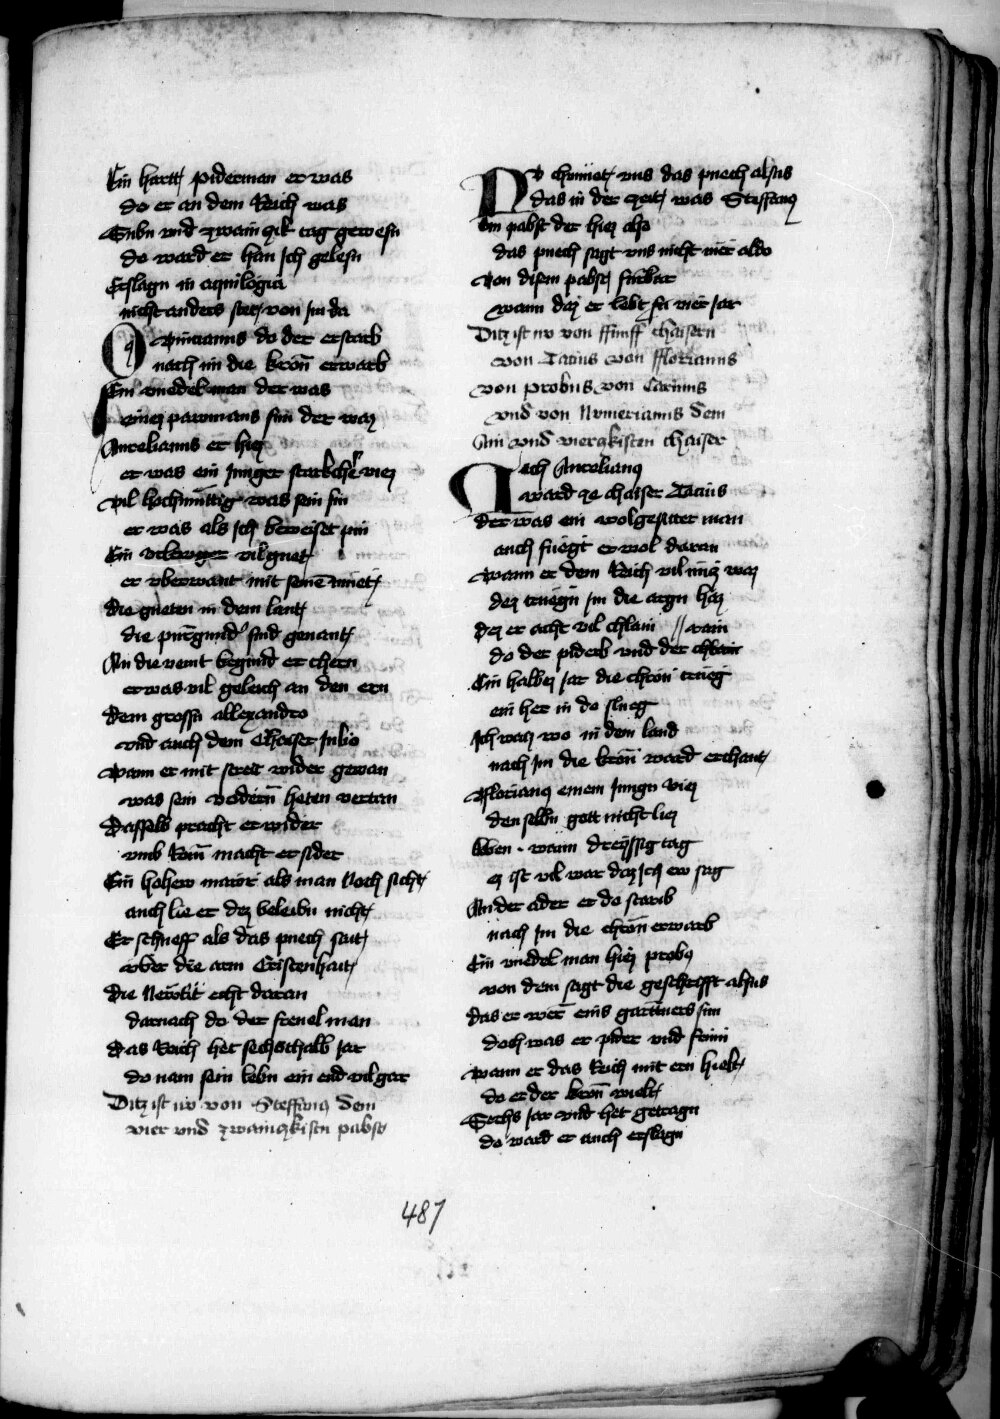 Ein hartt piderman er was
do er an dem Reich was
Sibn vnd zwainczik tag gewesn
do ward er han jch gelesn
Erslagn in aquilogia
nicht anders stet von jm da
Quintianus do der erstarb
nach im die kron erwarb
Ein vnedel man der was
eines pawmans sun der waz
Aurelianus er hiez
er was ein junger starkcher riez
vil hochmuttig was sein sin
er was als jch beweiset pin
Ein vrleuger vil guet
er vberwant mit seinem muet
die gueten in dem lant
die purgunder sind genant
An die veint begund er chern
er was vil geleich an den ern
dem grossn allexandro
vnd auch dem Chaiser Julio
wann er mit streit wider gewan
was sein vodern heten vertan
Dasselb pracht er wider
vmb Rom macht er sider
Ein hohew mawr als man noch sicht
auch lie er dez beleibn nicht
Er schueff als das puech sait
vber die arm Cristenhait
die Neront echt daran
darnach do der freuel man
das Reich het sechsthalb jar
do nam sein lebn ein end vil gar
Ditz ist nv von Steffanus dem
vier vnd zwainczkistn pabst
Nv chundet vns das puech alsus
das in der zeit was Steffanus
Ein pabst der hiez also
das puech sagt vns nicht mer aldo
von disem pabst furbar
wann daz er lebt fu vier jar
Ditz ist nv von ffunff chaisern
von Tatius von fflorianus
von probus von Carinus
vnd von Numerianus dem
Ain vnd viergkisten chaiser
Nach Aurelianus
ward ze chaiser Tacius
der was ein wolgesitter man
auch fuegt er wol daran
wann er dem Reich vil nucz waz
dez truegn jm die argn haz
Dez er acht vil chlain // rain
do der piderb vnd der
Ein halbez jar die chron trueg
ein her in do slueg
Jch waiz wo in dem land
nach jm die kron ward erchant
fflorianus einem jungn riez
den selbn gott nicht liez
leben . wann dreyssig tag
ez ist vil war daz jch ew sag
An der ader er do starib
nach jm die chron erwarb
Ein vnedel man hiez probus
von dem sagt die geschrifft alsus
Das er wer eins gartners sun
doch was er pider vnd frum
wann er das Reich mit ern hielt
do er der kron wielt
Sechs jar vnd het getragn
do ward er auch erslagn
487